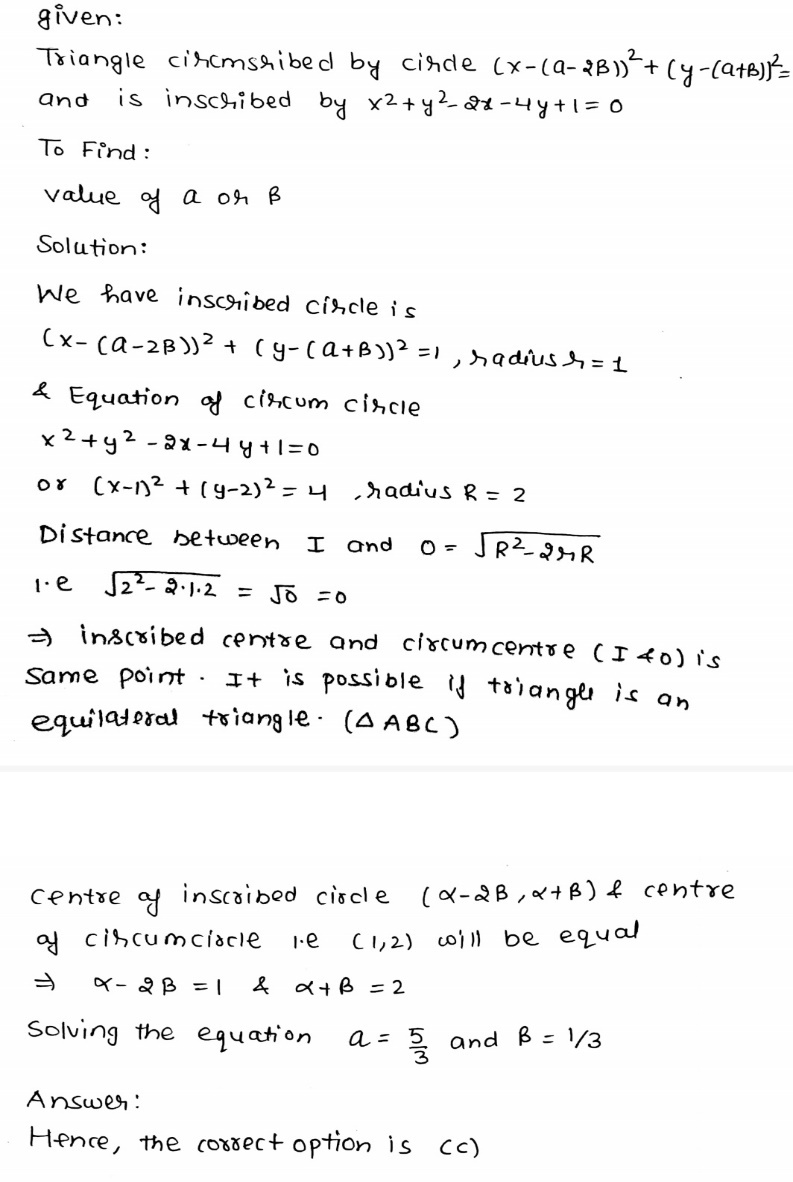 given:
Triangle circmsribed by circle (x-(a-2β))²+(y-(a+β))²=
and is inscribed by x²+y²-2x-4y+1=0
To Find:
value of a or β
Solution:
We have inscribed circle is
(x-(a-2β))²+(y-(a+β))²=1, radius r=1
& Equation of circum circle
x²+y²-2x-4y+1=0
or (x-1)²+(y-2)²=4, radius R=2
Distance between I and O=√R²-2rR
i.e √2²-2·1·2 = √0 =0
⇒ inscribed centre and circumcentre (I & O) is
same point. It is possible if triangle is an
equilateral triangle. (△ABC)
centre of inscribed circle (α-2β,α+β) & centre
of circumcircle i.e (1,2) will be equal
⇒ α-2β=1 & α+β=2
Solving the equation a=5/3 and β=1/3
Answer:
Hence, the correct option is (c)